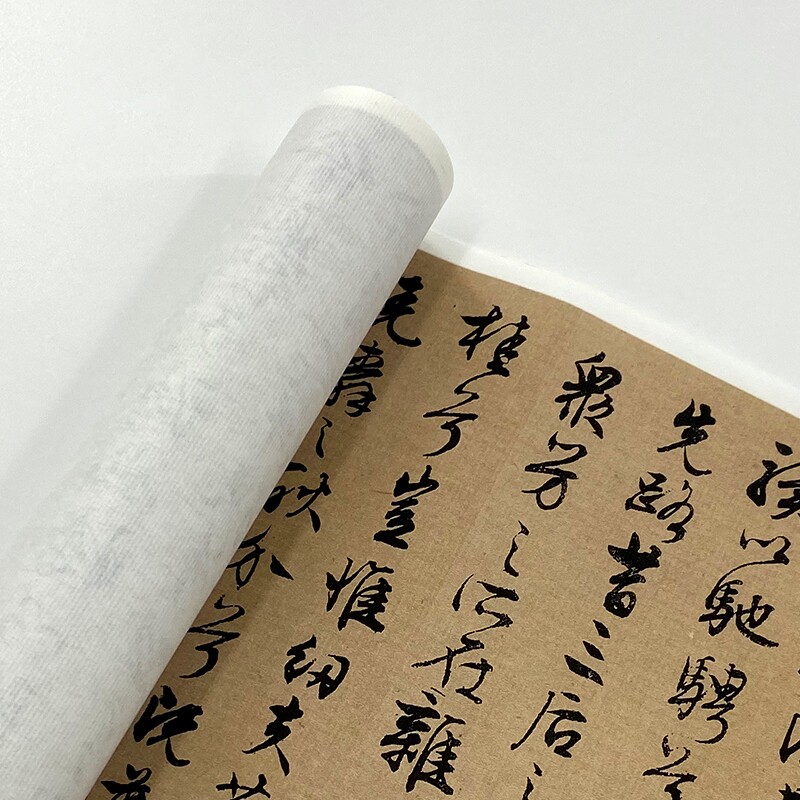 以馳騁兮
先路昔三后之
衆芳之所在雜
桂兮豈惟紉夫
堯舜之耿介兮既